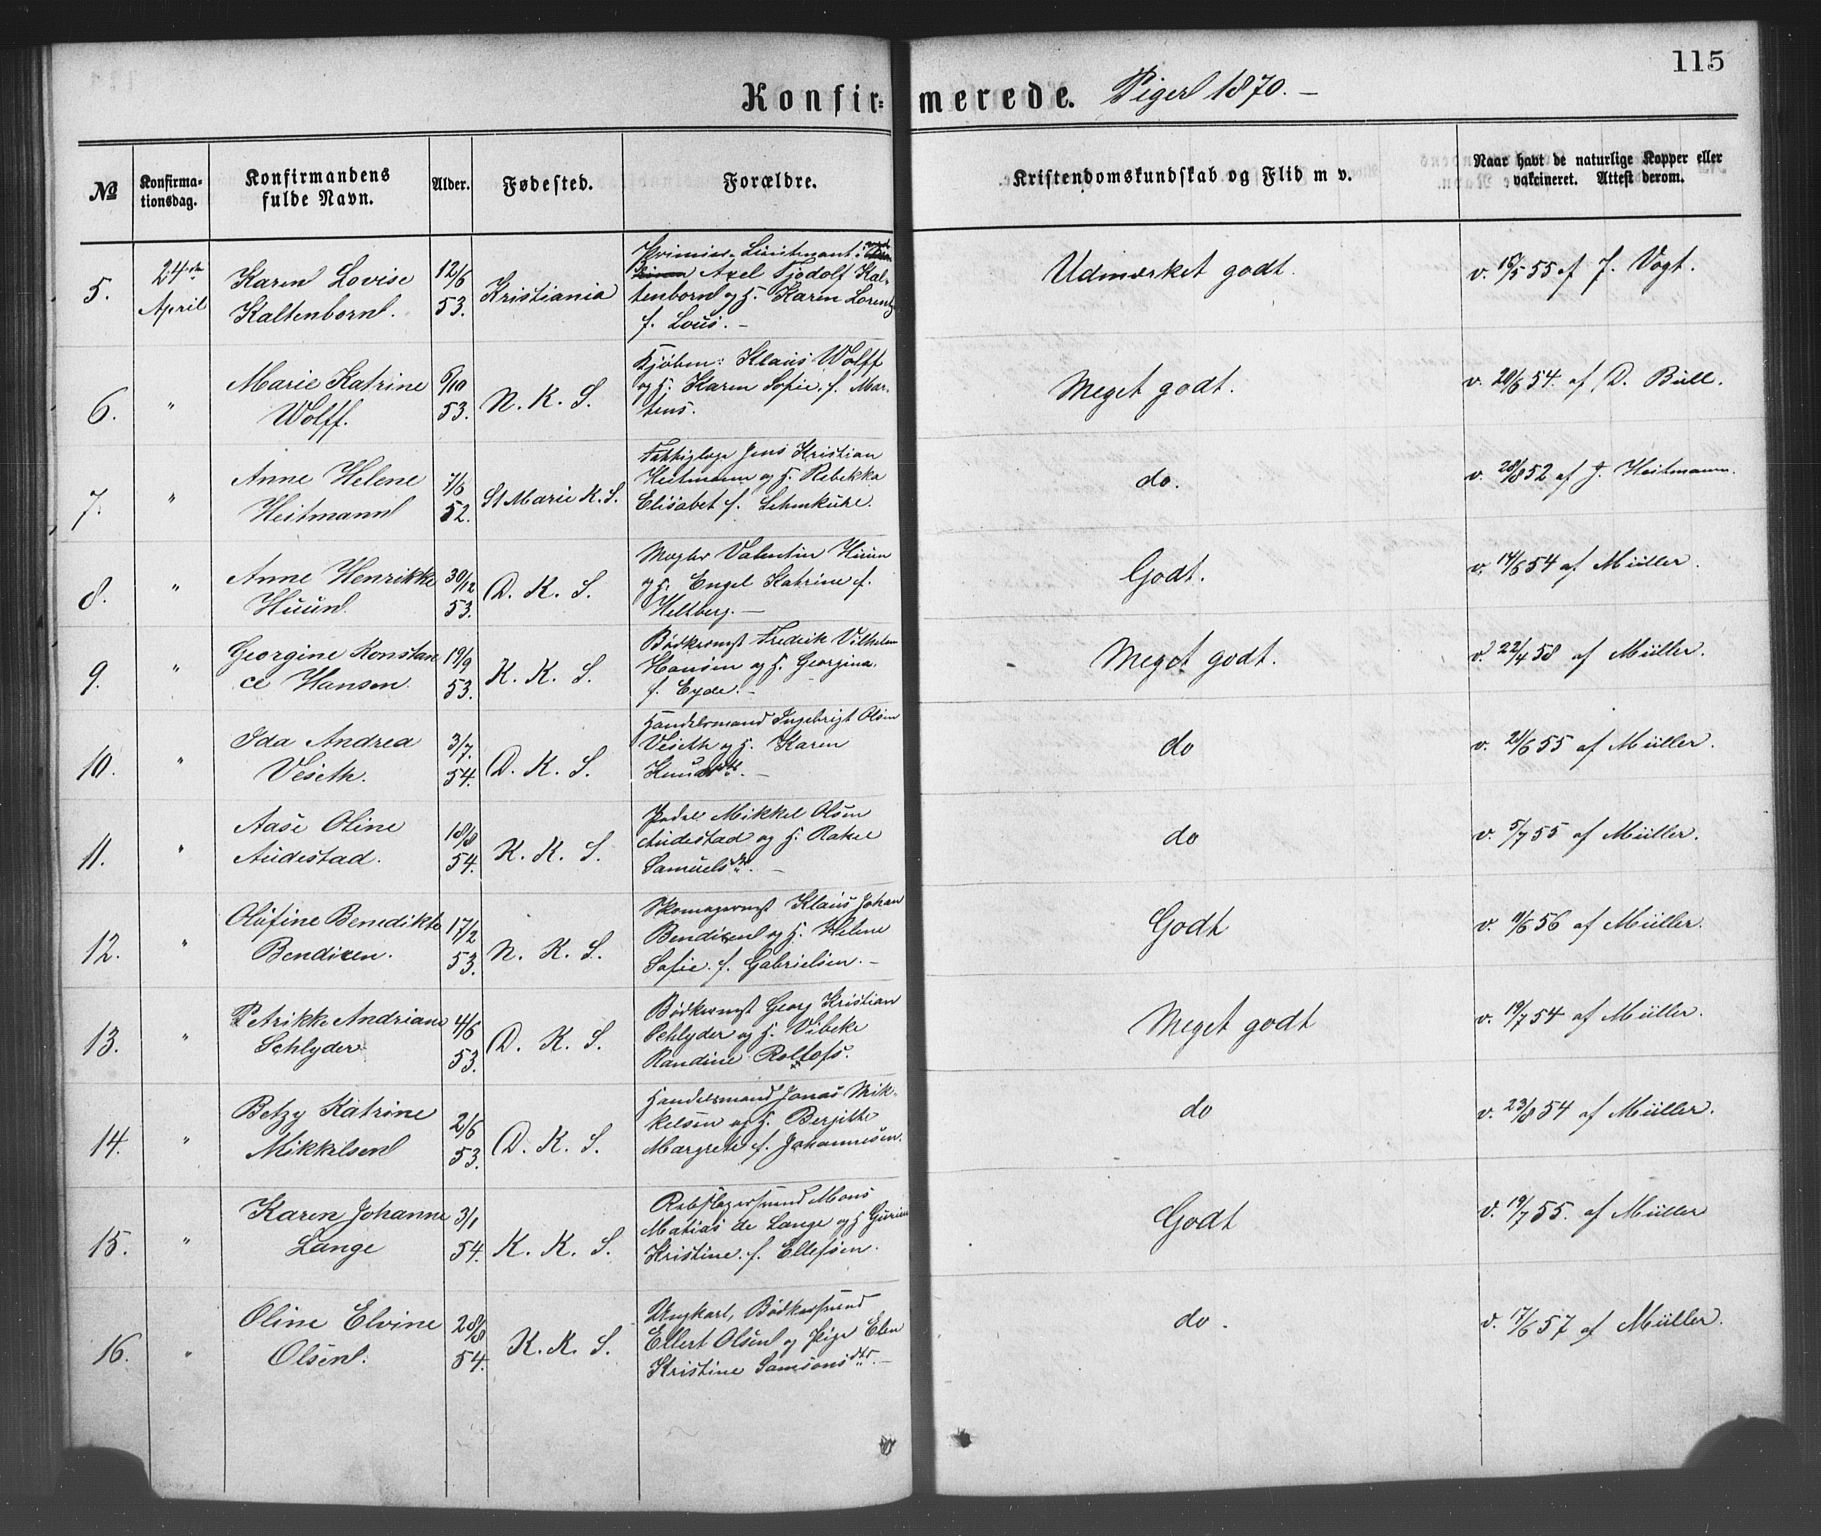 115
Konfirmerede. Piger 1870. —
№
Konfirmationsdag.
Konfirmandens fulde Navn.
Alder.
Fødested.
Forældre.
Kristendomskundskab og Flid m v.
Naar havt de naturlige Kopper eller vakcineret. Attest derom.
5.
24de April
Karen Lovise
Kaltenborn.
12/6
53.
Kristiania
Primier-Lieutenant
Axel Tjodolf Kal-
tenborn og H. Karen Lorentz
f. Lous. —
Udmærket godt.
v. 19/5 55 af J. Vogt.
6.
"
Marie Katrine
Wolff.
6/10
53.
N. K. S.
Kjøbm: Klaus Wolff
og H. Karen Sofie. f. Mar-
tens.
Meget godt.
v. 20/6 54. af D. Bull.
7.
"
Anne Helene
Heitmann
7/6
52.
St Marie K. S.
Fattiglæge Jens Kristian
Heitmann og H. Rebekka
Elisabet f. Lehmkuhl.
do.
v. 28/8 52 af J. Heitmann.
8.
"
Anne Henrikke
Huun.
30/12
53.
D. K. S.
Mægler Valentin Huun
og H. Engel Katrine f.
Heltberg. —
Godt.
v. 14/6 54 af Müller.
9.
"
Georgine Konstan
ce Hansen.
19/9
53.
K. K. S.
Bødkermst Fredrik Vilhelm
Hansen og H. Georgina.
f. Eyde. —
Meget godt.
v. 22/4 58 af Müller.
10.
"
Ida Andrea
Veseth.
3/7.
54.
D. K. S.
Handelsmand Ingebrigt Olsen
Veseth og H. Karen
Knudsdtr. —
do
v. 21/6 55 af Müller.
11.
"
Aase Oline
Audestad.
18/8
54.
K. K. S.
Mikkel Olsen
Audestad og H. Rakel
Samuelsdtr. —
do
v. 5/7 55 af Müller.
12.
"
Olufine Benedikte
Bendixen.
17/2
53.
N. K. S.
Skomagermst Klaus Johan
Bendixen og H. Helene
Sofie. f. Gabrielsen. —
Godt
v. 11/6 56 af Müller.
13.
"
Petrikke Andriane
Schlyder
4/6
53.
D. K. S.
Bødkermst Georg Kristian
Schlyder og H. Vibeke
Randine Roltofs.
Meget godt
v. 19/7 54 af Müller.
14.
"
Betzy Katrine
Mikkelsen
2/6
53.
D. K. S.
Handelsmand Jonas Mik-
kelsen og H. Berjitte
Margrete f. Johannesen.
do
v. 23/8 54 af Müller.
15.
"
Karen Johanne
Lange
3/1
54.
K. K. S.
Rebslagersvend Mons
Matias de Lange og H Gurine
Kristine. f. Ellefsen.
Godt
v. 19/7 55. af Müller
16.
"
Oline Elvine
Olsen.
28/8
54.
K. K. S.
Ungkarl, Bødkersvend
Ellert Olsen og Pige Elen
Kristine Samsonsdtr. —
do.
v. 17/6 57 af Müller.